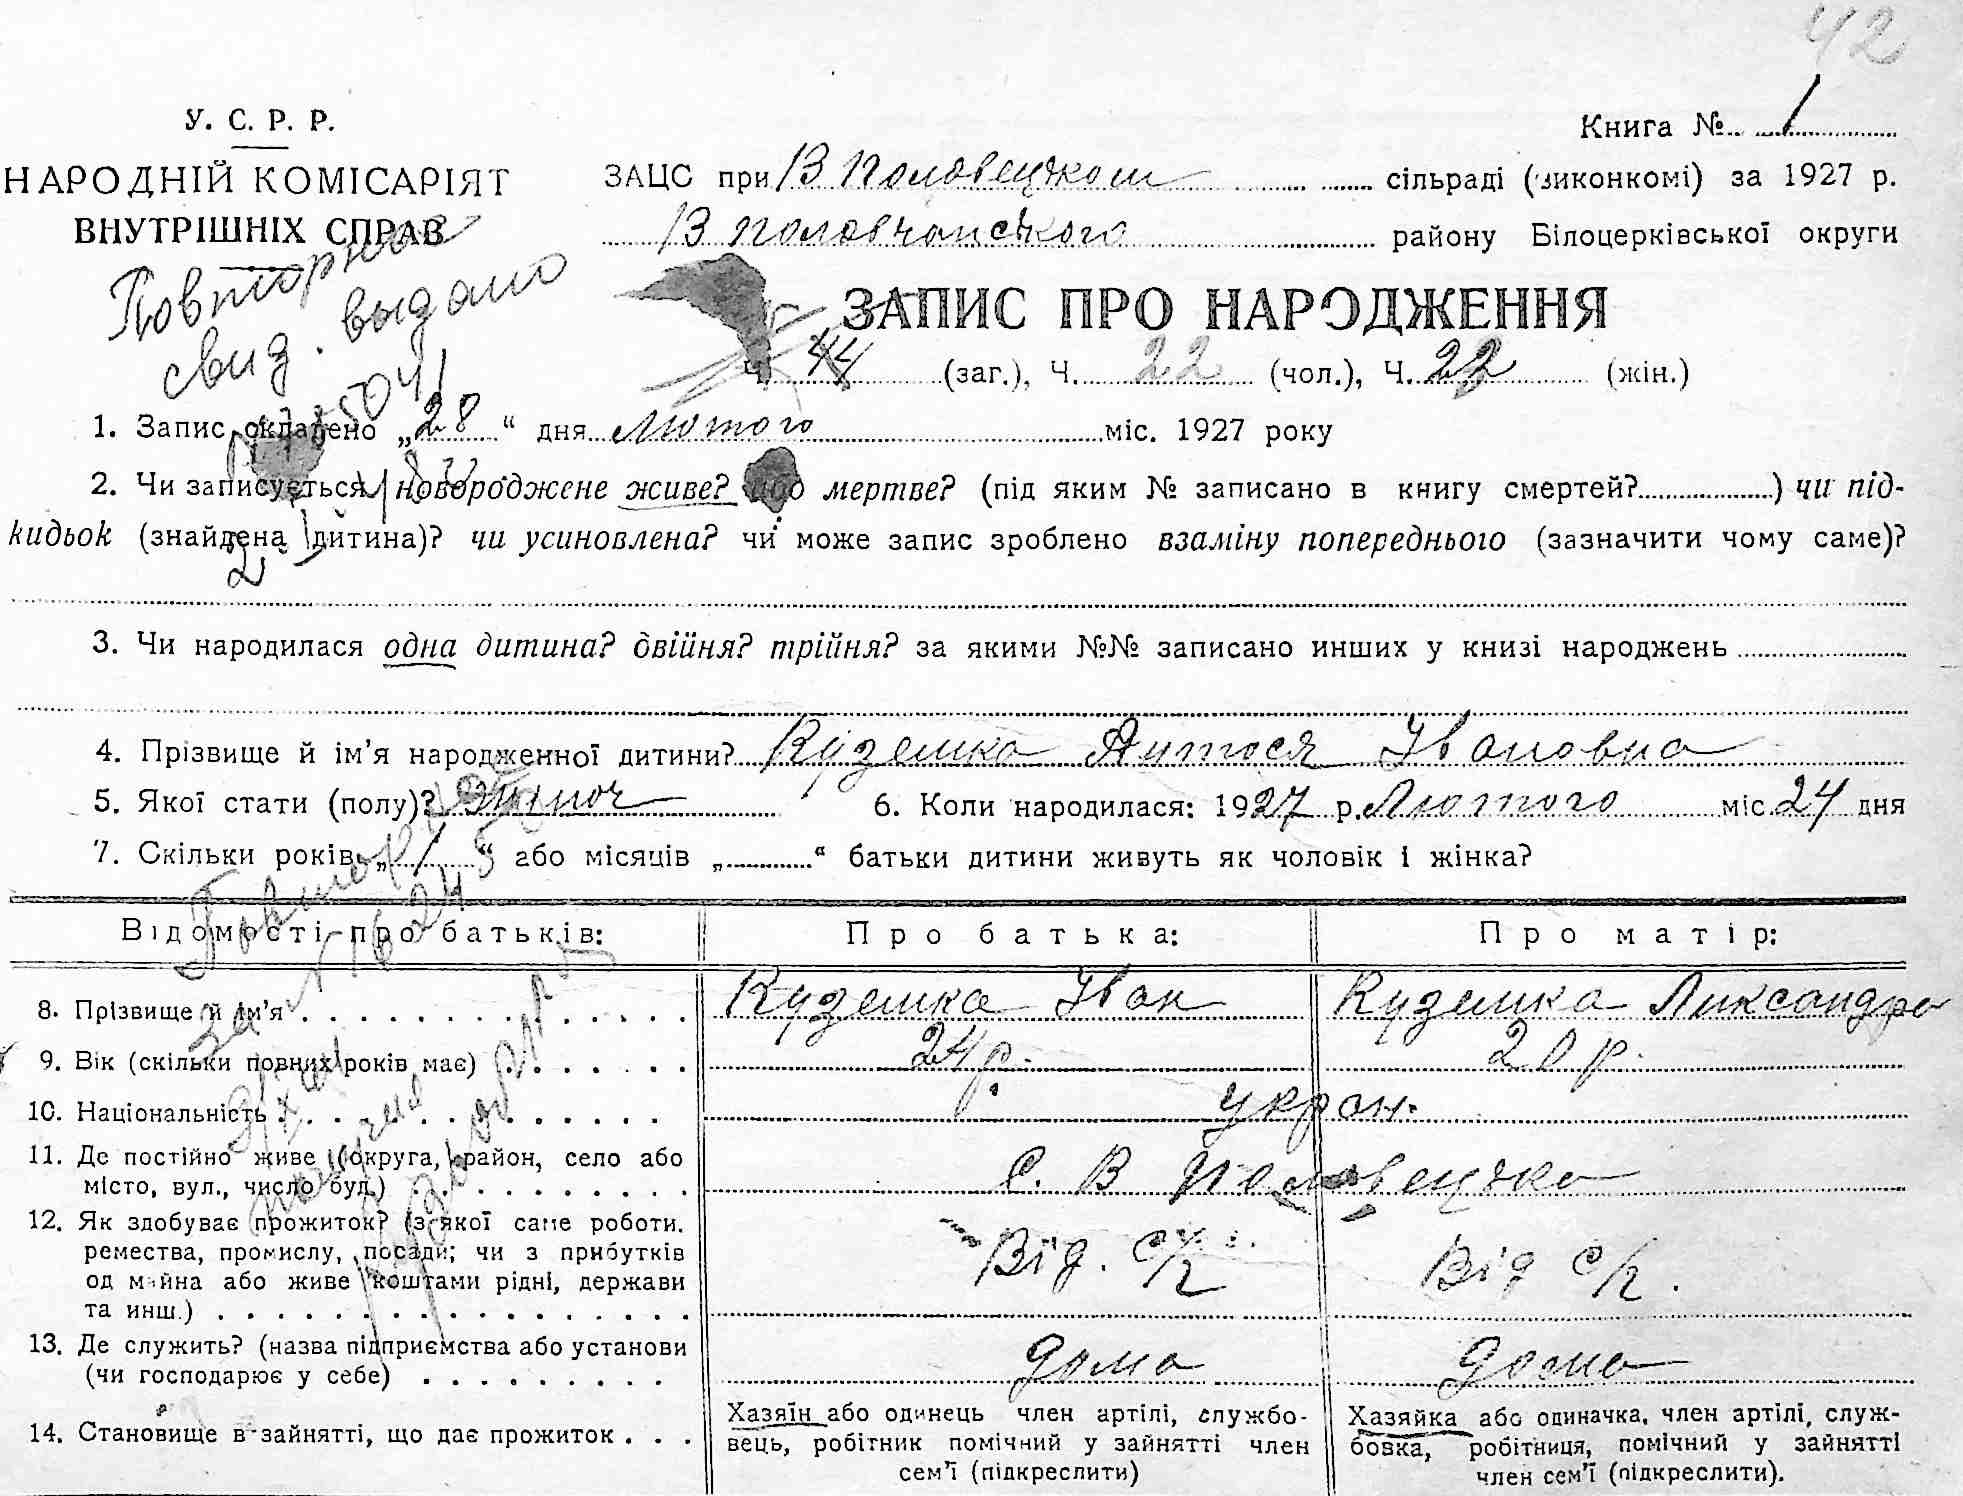 42
У. С. Р. Р.
НАРОДНІЙ КОМІСАРІЯТ
ВНУТРІШНІХ СПРАВ
Книга № 1
ЗАЦС при В Половецьком сільраді (виконкомі) за 1927 р.
В Половчанського району Білоцерківської округи
Повторное
свид. выдано
ЗАПИС ПРО НАРОДЖЕННЯ
Ч. 44 (заг.), Ч. 22 (чол.), Ч. 22 (жін.)
1. Запис складено „28“ дня Лютого міс. 1927 року
2. Чи записується новороджене живе? або мертве? (під яким № записано в книгу смертей?) чи під-
кидьок (знайдена дитина)? чи усиновлена? чи може запис зроблено взаміну попереднього (зазначити чому саме)?
3. Чи народилася одна дитина? двійня? трійня? за якими №№ записано инших у книзі народжень
4. Прізвище й ім'я народженної дитини? Куземка Антося Івановна
5. Якої стати (полу)? жиноч 6. Коли народилася: 1927 р. Лютого міс. 24 дня
7. Скільки років „1“ або місяців „ “ батьки дитини живуть як чоловік і жінка?
Повторное
Відомості про батьків: Про батька: Про матір:
8. Прізвище й ім'я Куземка Іван Куземка Ликсандра
9. Вік (скільки повних років має) 24 р. 20 р.
10. Національність укран.
11. Де постійно живе (округа, район, село або
місто, вул., число буд.) С. В Половецька
12. Як здобуває прожиток? (з якої саме роботи.
ремества, промислу, посади; чи з прибутків
од майна або живе коштами рідні, держави
та инш.) Від. с/г Від с/г.
13. Де служить? (назва підприємства або установи
(чи господарює у себе) дома дома
14. Становище в зайнятті, що дає прожиток
Хазяїн або одинець член артілі, службо-
вець, робітник помічний у зайнятті член
сем'ї (підкреслити)
Хазяйка або одиначка, член артілі, служ-
бовка, робітниця, помічний у зайнятті
член сем'ї (підкреслити).